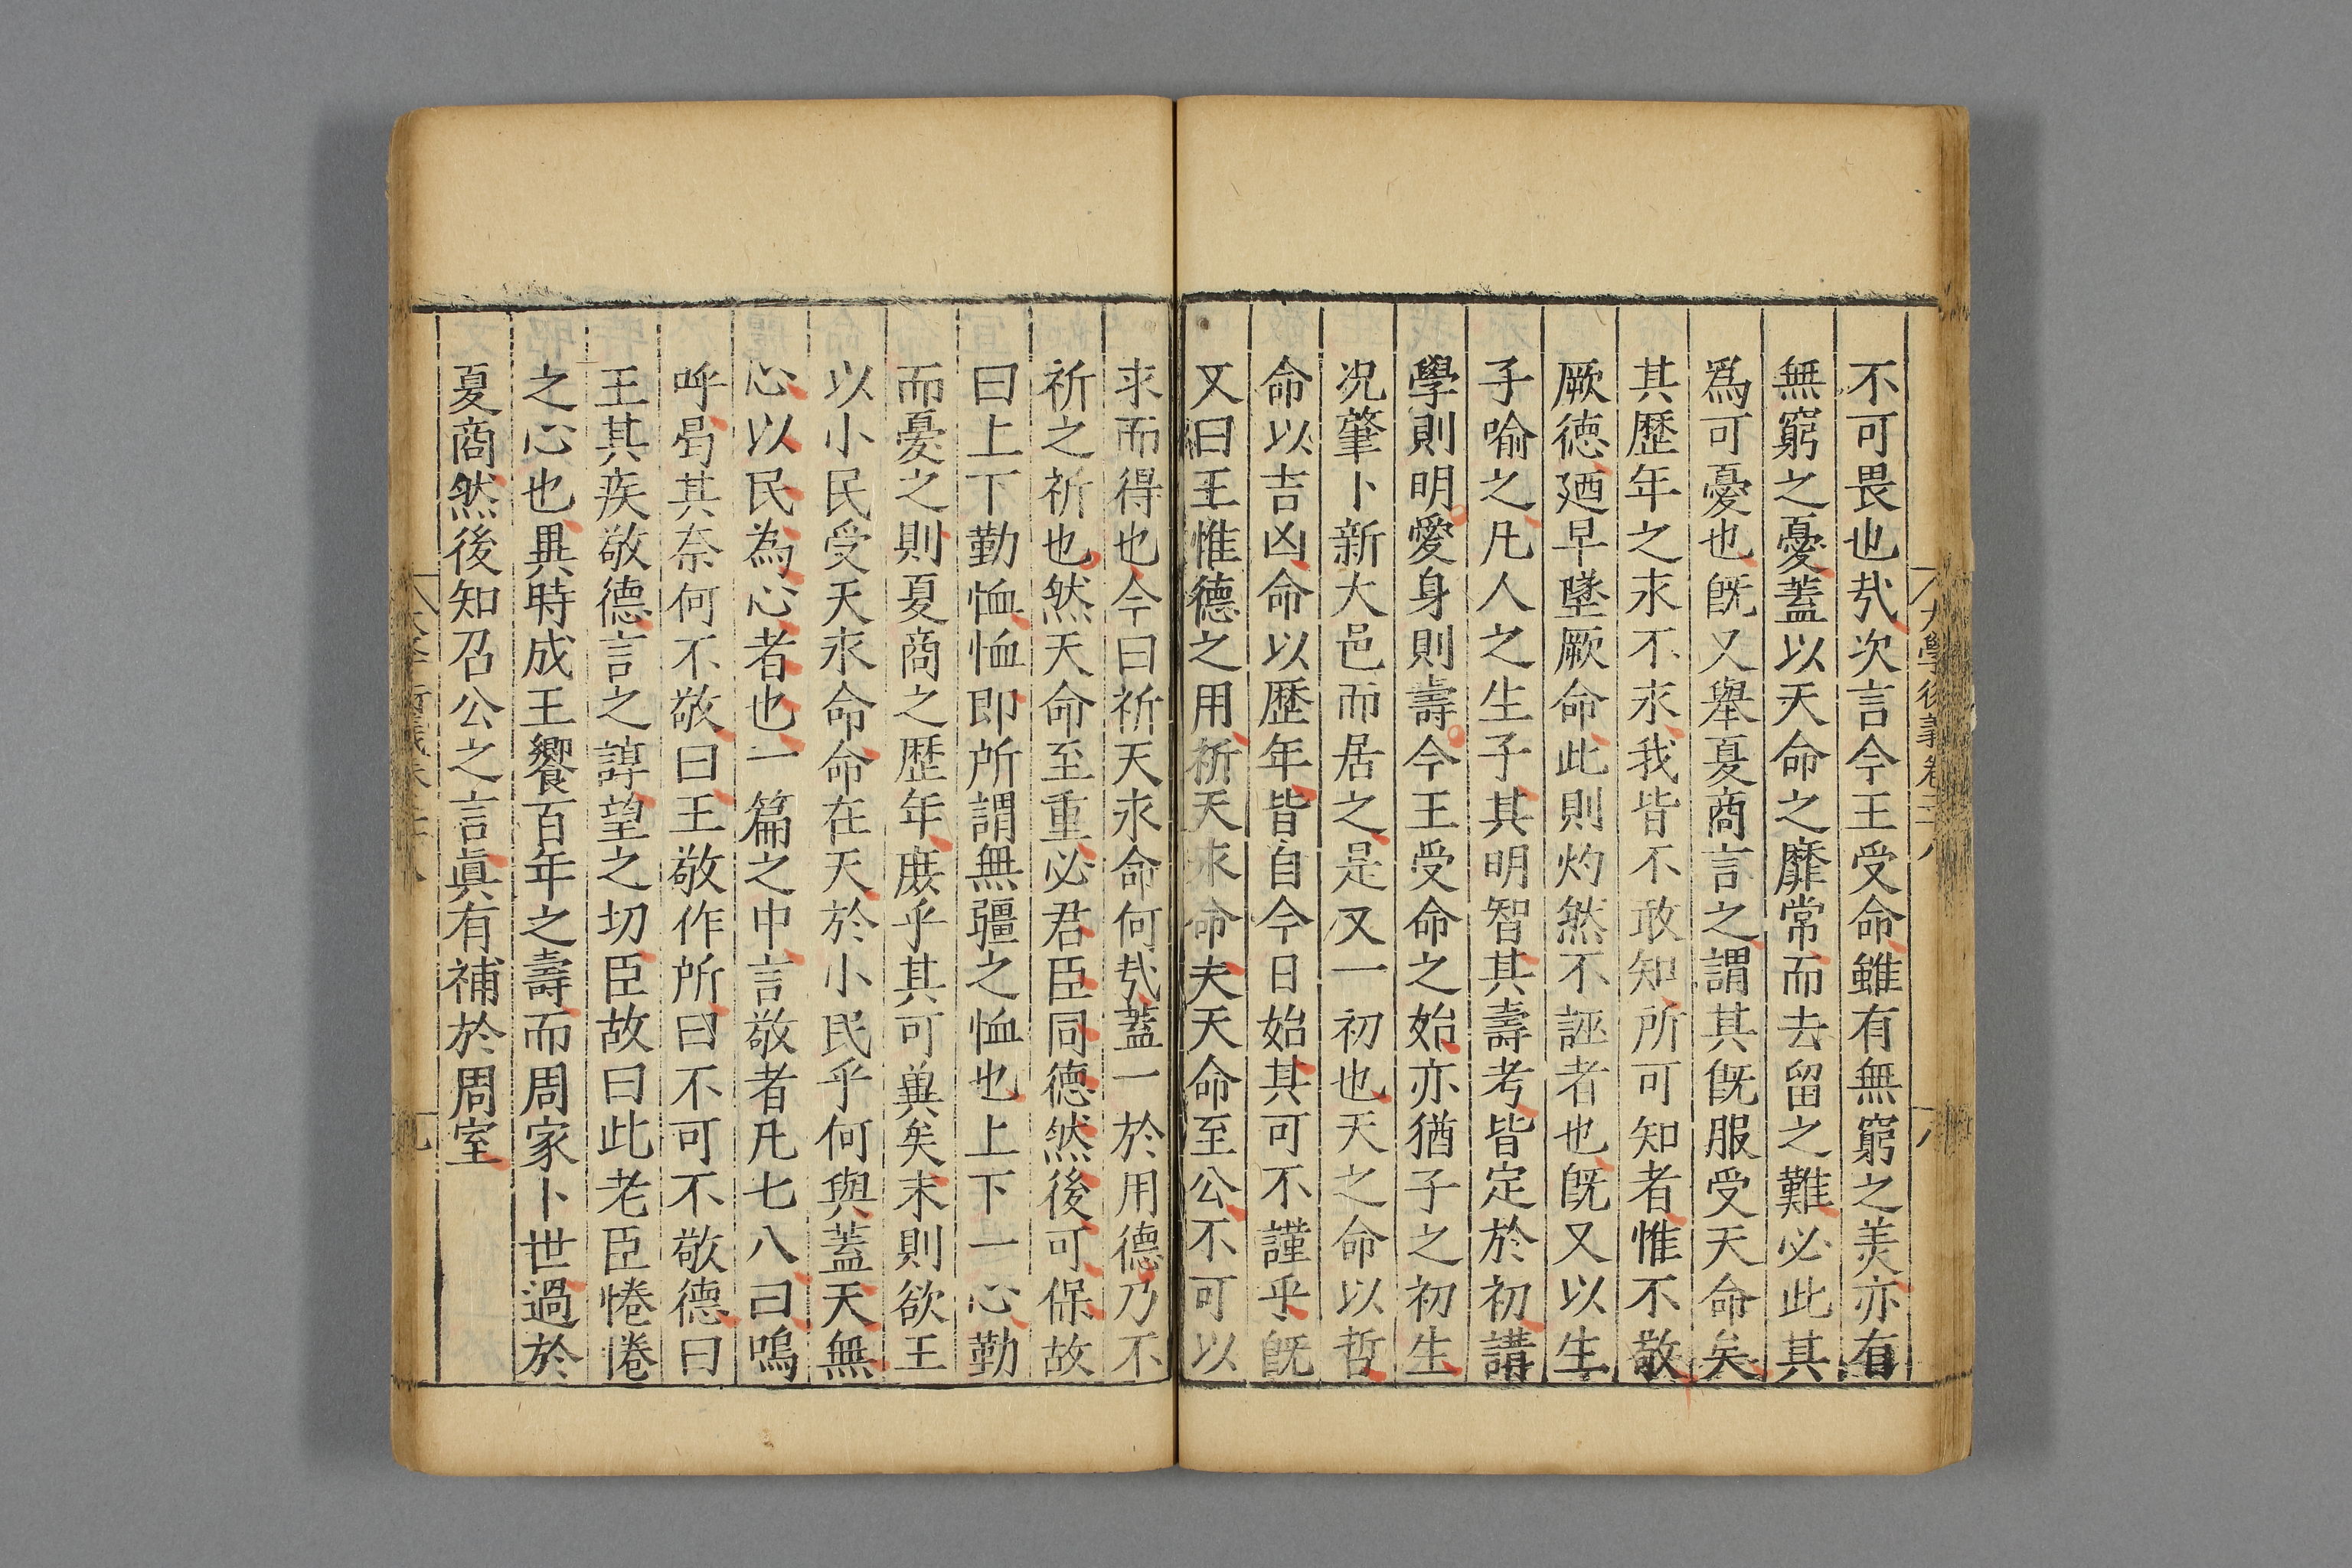 不可畏也㢤次言今王受命雖有無窮之美亦有
無窮之憂蓋以天命之靡常而去留之難必此其
爲可憂也旣又舉夏商言之謂其旣服受天命矣
其歷年之永不永我皆不敢知所可知者惟不敬
厥德廼早墜厥命此則灼然不誣者也旣又以生
子喻之凡人之生子其明智其壽考皆定於初講
學則明愛身則壽今王受命之始亦猶子之初生
况肇卜新大邑而居之是又一初也天之命以哲
命以吉凶命以歷年皆自今日始其可不謹乎旣
又曰王惟德之用祈天永命夫天命至公不可以
求而得也今曰祈天永命何㢤蓋一於用德乃不
祈之祈也然天命至重必君臣同德然後可保故
曰上下勤恤恤即所謂無疆之恤也上下一心勤
而憂之則夏商之歷年庶乎其可兾矣末則欲王
以小民受天永命命在天於小民乎何與蓋天無
心以民為心者也一篇之中言敬者凡七八曰嗚
呼曷其奈何不敬曰王敬作所曰不可不敬德曰
王其疾敬德言之諄望之切臣故曰此老臣惓惓
之心也異時成王饗百年之壽而周家卜世過於
夏商然後知召公之言眞有補於周室
大學衍義卷二十八
八